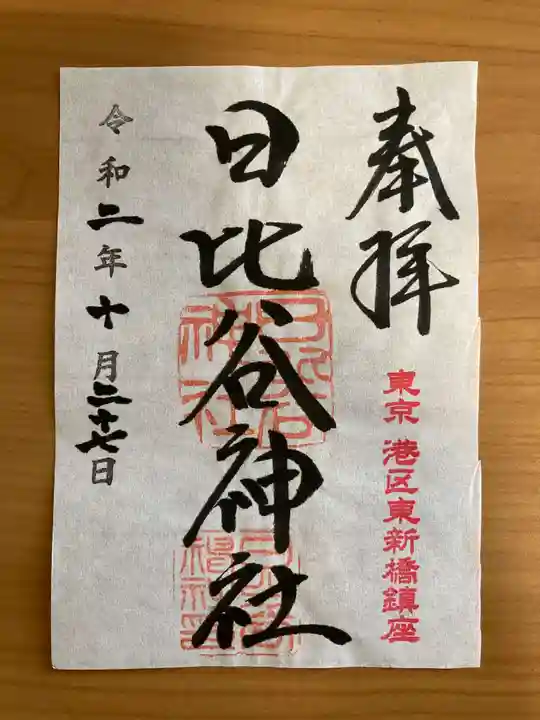 奉拝
東京 港区東新橋鎮座
日比谷神社
日比谷神社
令和二年十月二十七日